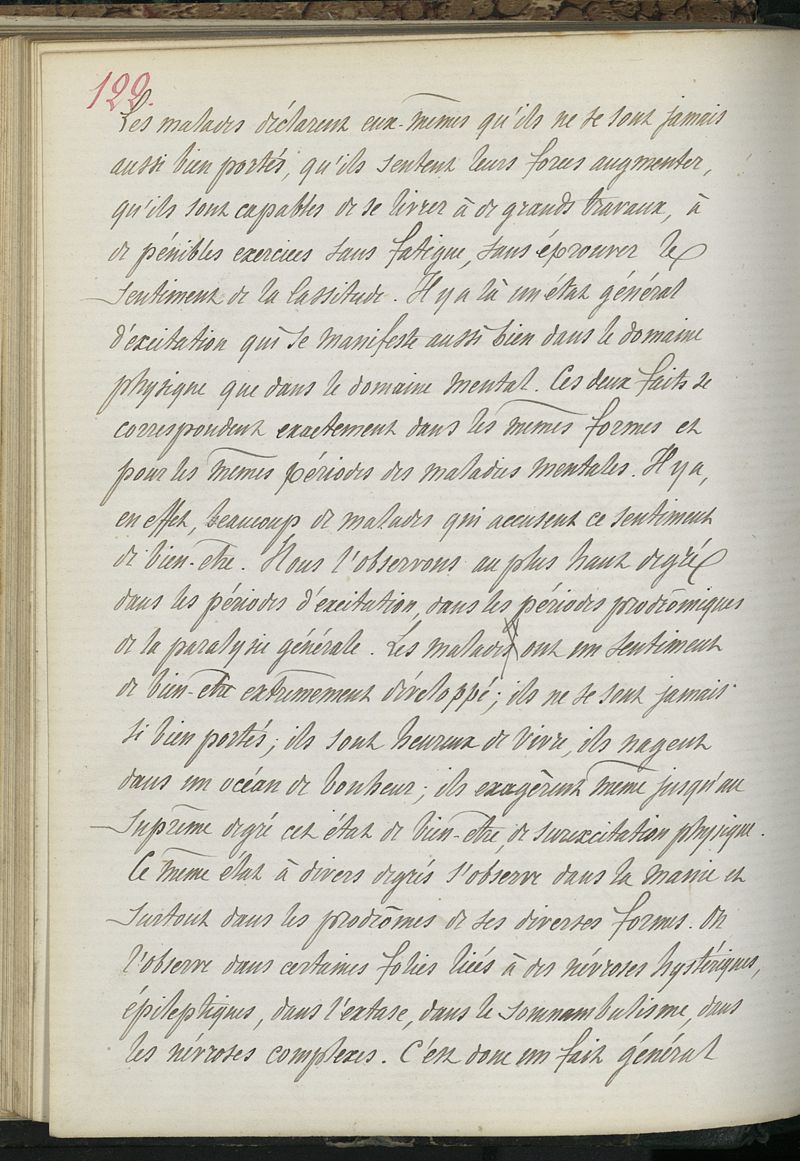 122.
Les malades déclarent eux-mêmes qu'ils ne se sont jamais
aussi bien portés, qu'ils sentent leurs forces augmenter,
qu'ils sont capables de se livrer à de grands travaux, à
de pénibles exercices sans fatigue, sans éprouver le
sentiment de la lassitude. Il y a là un état général
d'excitation qui se manifeste aussi bien dans le domaine
physique que dans le domaine mental. Ces deux faits se
correspondent exactement dans les mêmes formes et
pour les mêmes périodes des maladies mentales. Il y a,
en effet, beaucoup de malades qui accusent ce sentiment
de bien-être. Nous l'observons au plus haut degré
dans les périodes d'excitation, dans les périodes prodrômiques
de la paralysie générale. Les malades ont un sentiment
de bien-être extrêmement développé; ils ne se sont jamais
si bien portés; ils sont heureux de vivre, ils nagent
dans un océan de bonheur; ils exagèrent même jusqu'au
suprême degré cet état de bien-être, de surexcitation physique.
Ce même état à divers degrés s'observe dans la manie et
surtout dans les prodrômes de ses diverses formes. On
l'observe dans certaines folies liées à des névroses hystériques,
épileptiques, dans l'extase, dans le somnambulisme, dans
les névroses complexes. C'est donc un fait général